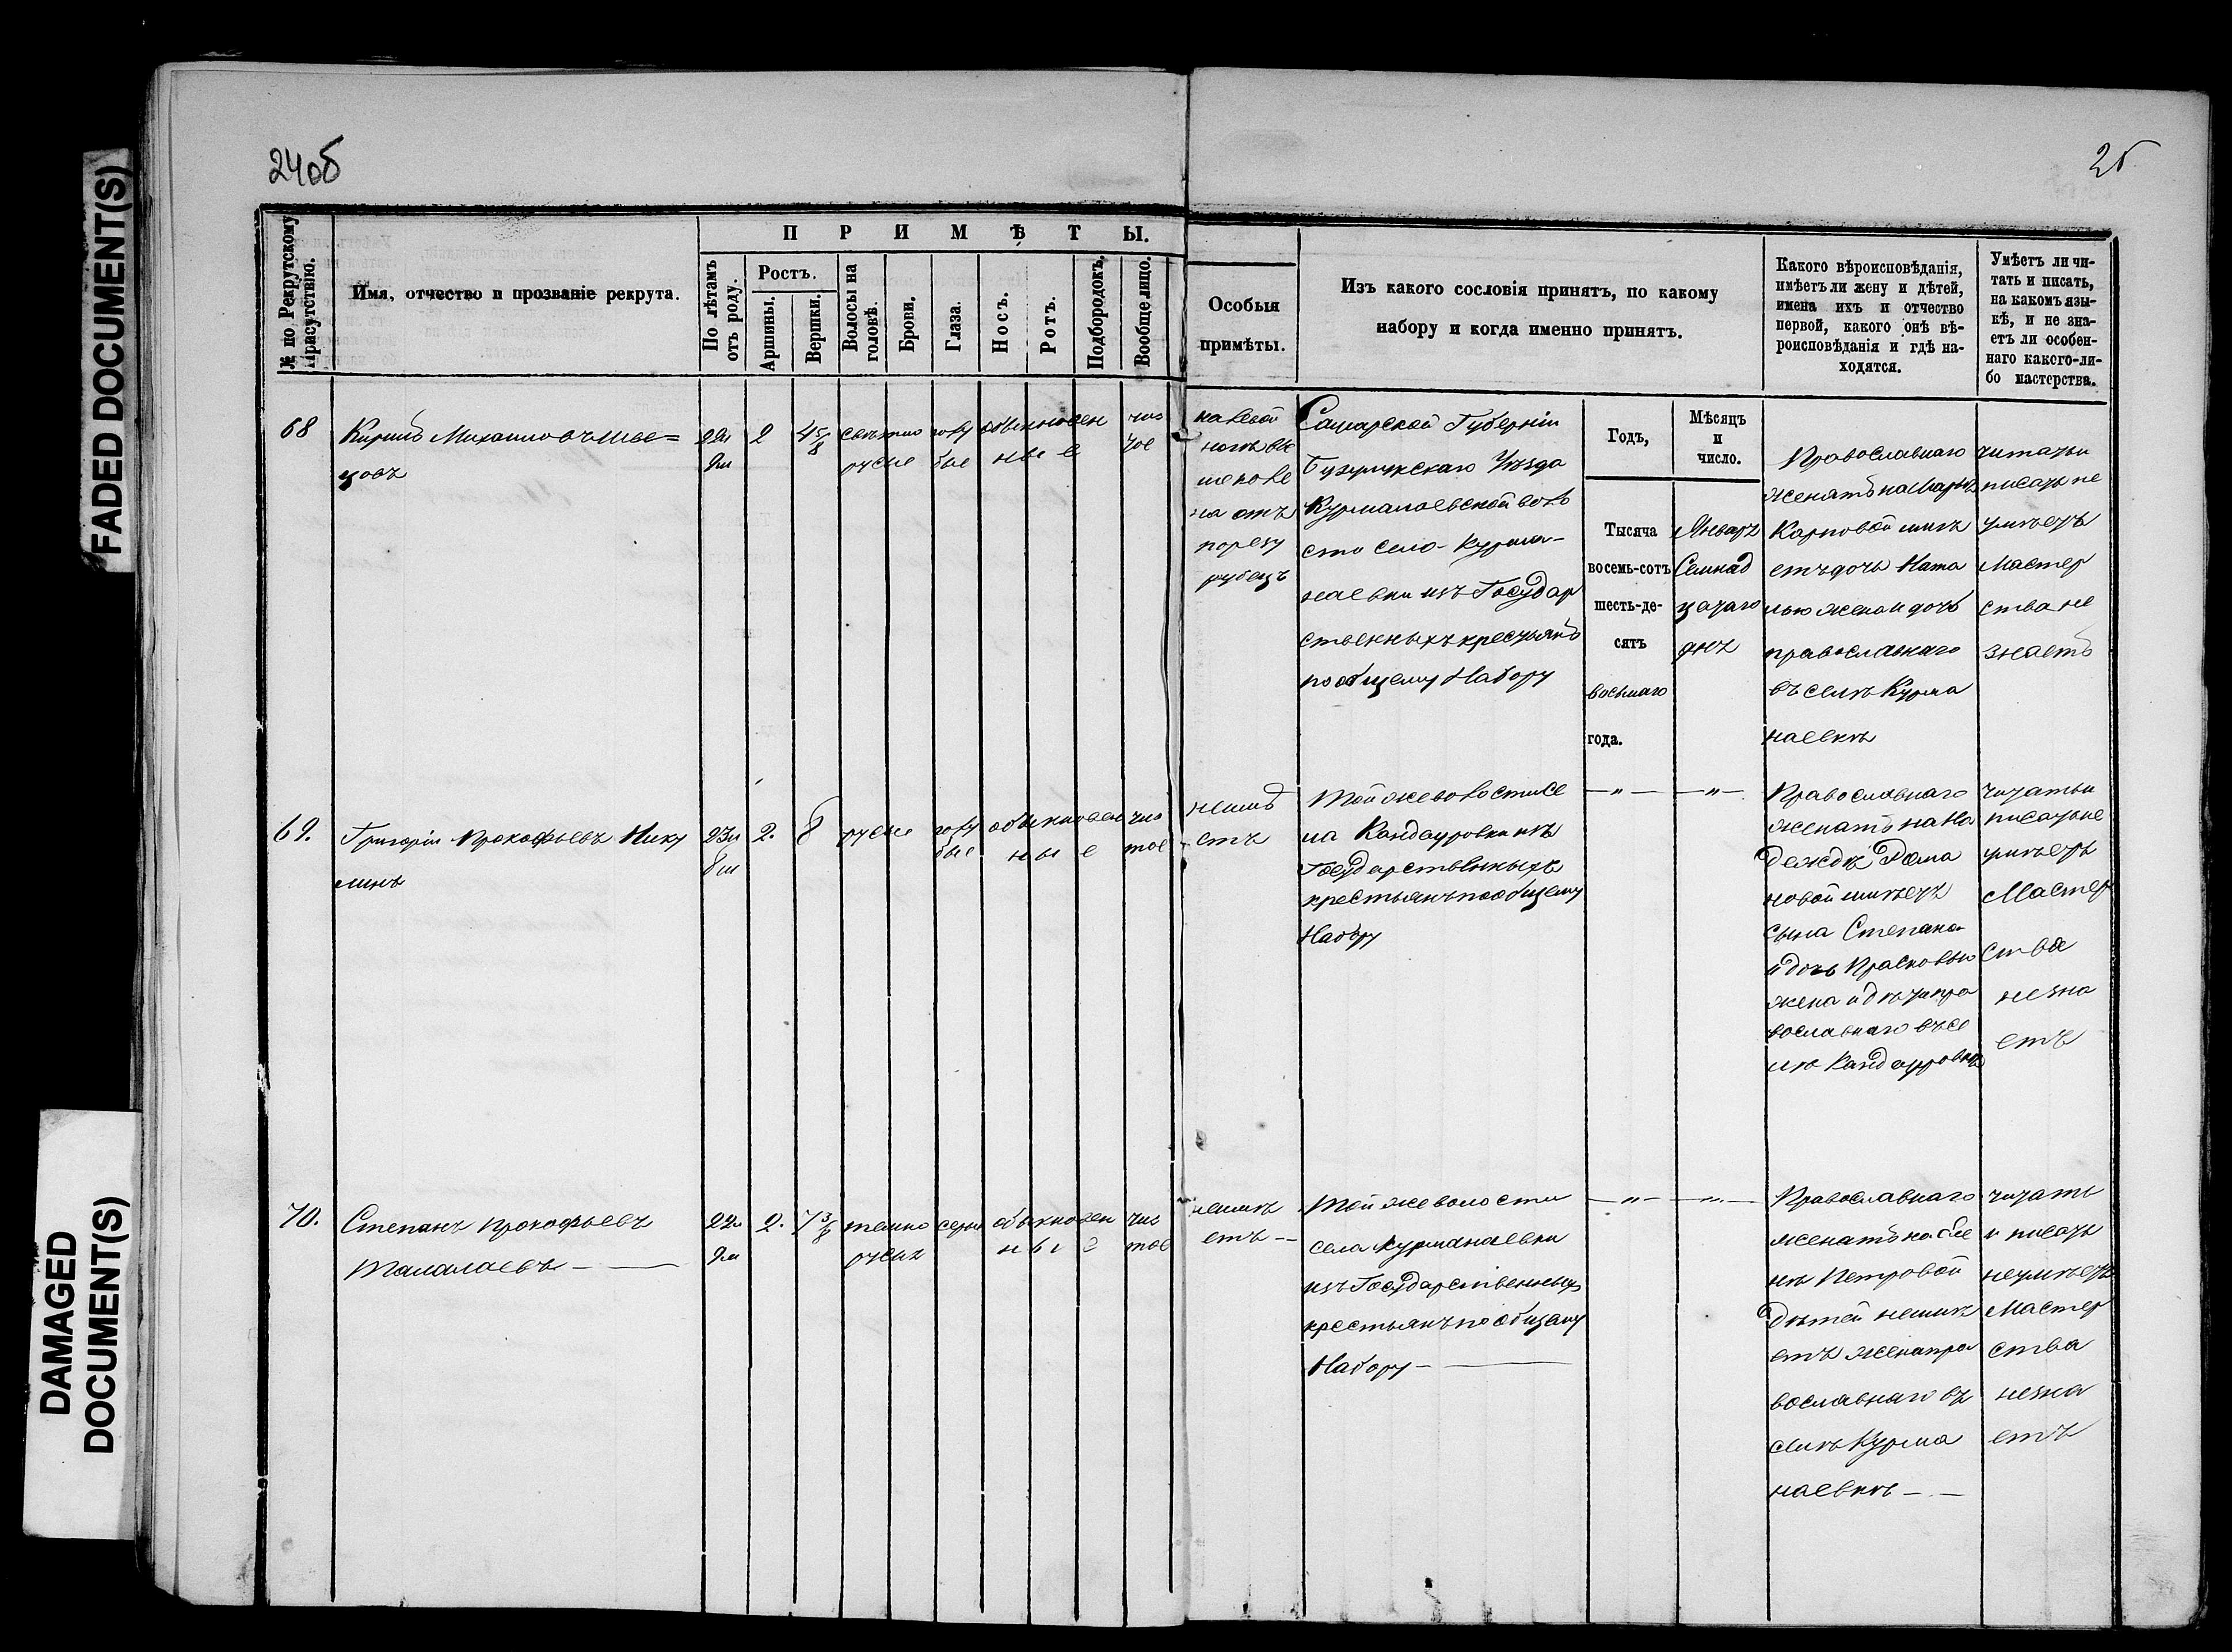 FADED DOCUMENT(S)
DAMAGED
DOCUMENT(S)
24об
25
№ по Рекрутскому
Присутствію.
Имя, отчество и прозваніе рекрута.
ПРИМѢТЫ.
По лѣтамъ
отъ роду.
Ростъ.
Аршины.
Вершки.
Волосы на
головѣ.
Брови.
Глаза.
Носъ.
Ротъ.
Подбородокъ.
Вообще лицо.
Особыя
примѣты.
Изъ какого сословія принятъ, по какому
набору и когда именно принятъ.
Какого вѣроисповѣданія,
имѣетъ ли жену и дѣтей,
имена ихъ и отчество
первой, какого онѣ вѣ-
роисповѣданія и гдѣ на-
ходятся.
Умѣетъ ли чи-
тать и писать,
на какомъ язы-
кѣ, и не зна-
етъ ли особен-
наго какого-ли-
бо мастерства.
68
Кирилъ Михаиловъ Шве=
цовъ
22
2
4 5/8
свѣтло
русые
голу
бые
обыкновен
ные
чис
тое
на левой
ноге вы
ше коле
на отъ
порезу
рубецъ
Самарской Губерніи
Бузулукскаго Уѣзда
Курманаевской воло
сти Село-Курма-
наевки изъ Государ
ственныхъ крестьянъ
по общему Набору
Годъ,
Мѣсяцъ
и
число.
Тысяча
восемь-сотъ
шесть-де-
сятъ
восьмаго
года.
Январъ
Семнад
цатаго
дня
Православнаго
женатъ на Марье
Карповой имѣ
етъ дочь Ната
лью жена и дочь
православнаго
въ селѣ Курма
наевкѣ
читать и
писать не
умѣетъ
Мастер
ства не
знаетъ
69.
Григорій Прокофьевъ Нику
линъ
23
2.
8
русые
голу
бые
обыкновен
ные
чис
тое
неимѣ
етъ
Той же волости се
ла Кандауровки изъ
Государственныхъ
крестьянъ по общему
Набору
— „ —
— „ —
Православнаго
женатъ на На
дежде Рома
новой имѣетъ
сына Степана
и дочь Прасковью
жена и дѣти пра
вославнаго въ се
лѣ Кандауровкѣ
читать и
писать не
умѣетъ
Мастер
ства
незна
етъ
70.
Степанъ Прокофьевъ
Талалаевъ
22
2.
7 3/8
темно
русые
серые
обыкновен
ные
чис
тое
неимѣ
етъ —
Той же волости
села Курманаевки
изъ Государственныхъ
крестьянъ по общему
Набору —
— „ —
— „ —
Православнаго
женатъ на
Петровой
дѣтей неимѣ
етъ жена пра
вославнаго въ
селѣ Курма
наевкѣ — —
читать
и писать
неумѣетъ
Мастер
ства
незна
етъ